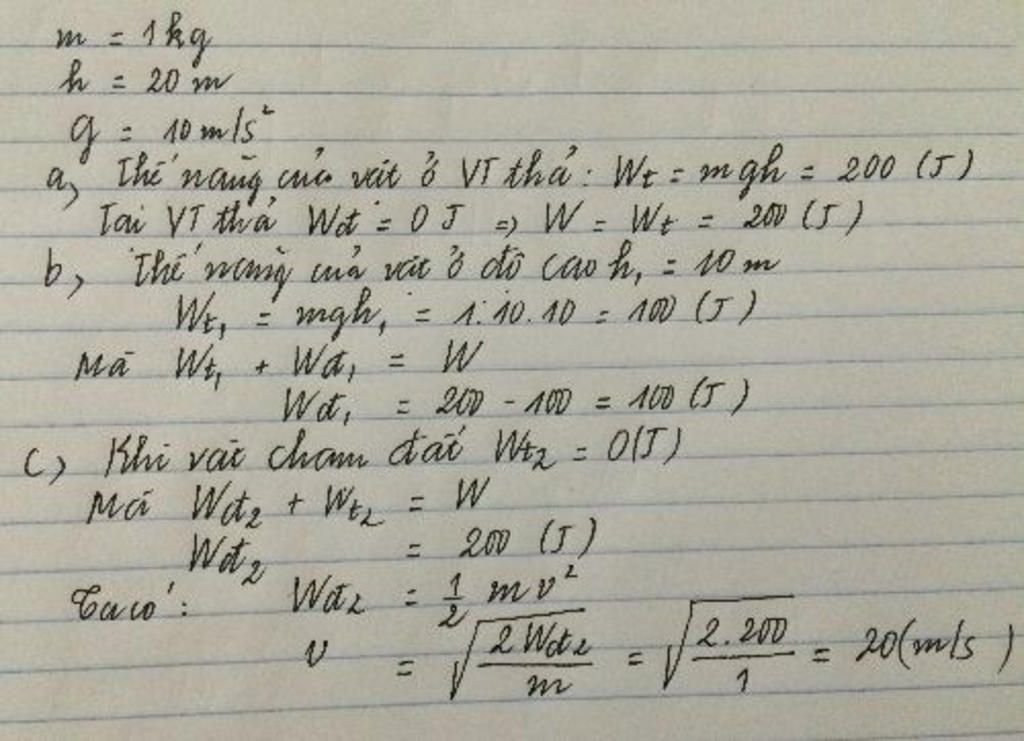 m = 1kg
h = 20 m
g = 10 m/s²
a, Thế năng của vật ở VT thả: Wt = mgh = 200 (J)
Tại VT thả Wđ = 0 J => W = Wt = 200 (J)
b, Thế năng của vật ở độ cao h₁ = 10 m
Wt₁ = mgh₁ = 1.10.10 = 100 (J)
Mà Wt₁ + Wđ₁ = W
Wđ₁ = 200 - 100 = 100 (J)
C, Khi vật chạm đất Wt₂ = 0(J)
Mà Wđ₂ + Wt₂ = W
Wđ₂ = 200 (J)
Ta có: Wđ₂ = 1/2 mv²
v = √(2Wđ₂/m) = √(2.200/1) = 20(m/s)